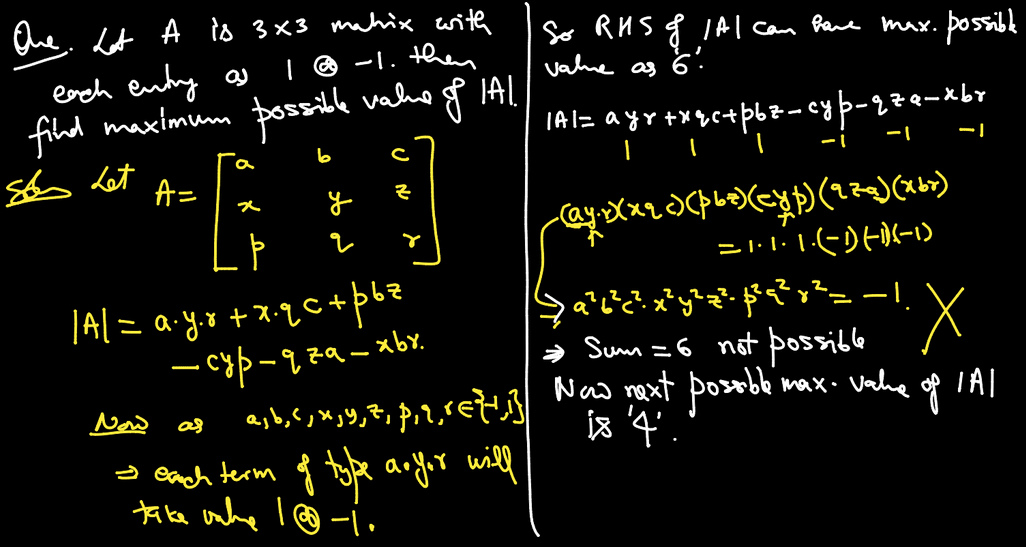 Que. Let A is 3×3 matrix with
each entry as 1 or -1. then
find maximum possible value of |A|.
Soln Let A = [a b c
x y z
p q r]
|A| = a.y.r + x.q c + p b z
- cyp - q z a - xbr.
Now as a, b, c, x, y, z, p, q, r ∈ {-1, 1}
⇒ each term of type a.y.r will
take value 1 or -1.
So RHS of |A| can have max. possible
value as '6'.
|A| = a y r + x q c + p b z - c y p - q z a - x b r
1 1 1 -1 -1 -1
(a y.r)(x q c)(p b z)(c y p)(q z a)(x b r)
= 1.1.1.(-1)(-1)(-1)
⇒ a² b² c². x² y² z². p² q² r² = -1.
⇒ Sum = 6 not possible
Now next possible max. value of |A|
is '4'.